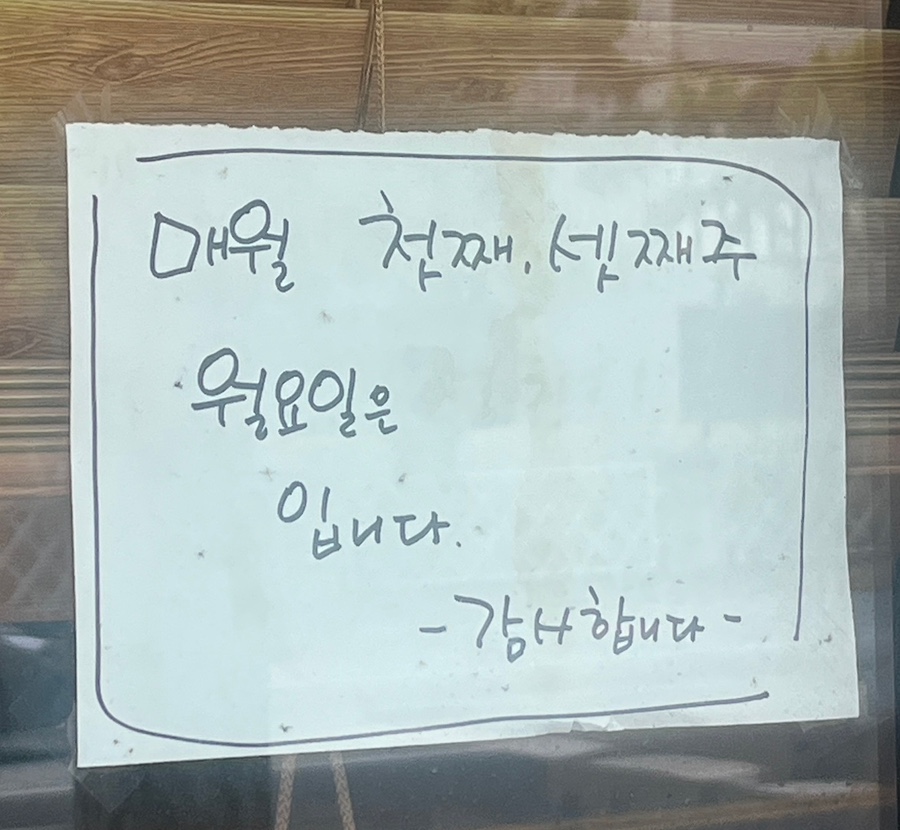 매월 첫째.셋째주
월요일은
입니다.
-감사합니다-